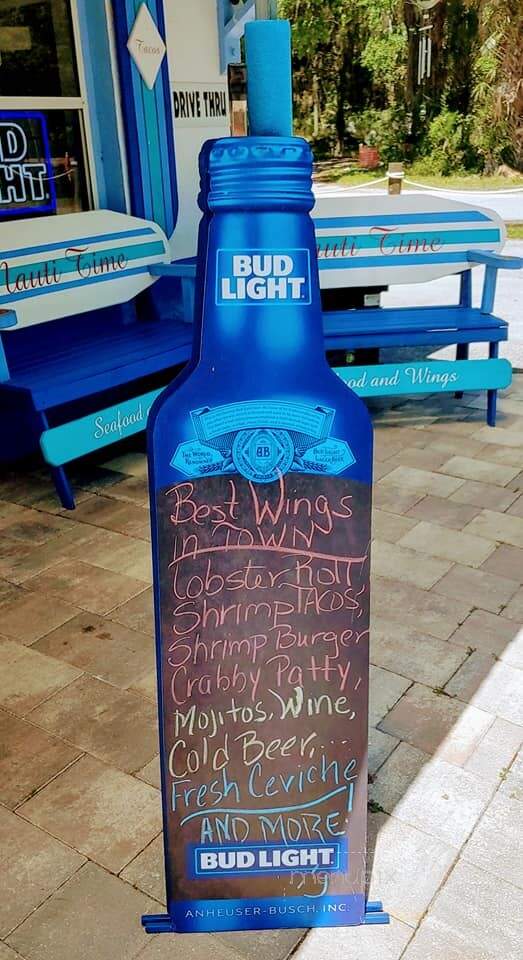 Tacos
DRIVE THRU
D
HT
Nauti Time
uti Time
BUD
LIGHT
THE WORLD
RENOWNED
BUD LIGHT
LAGER BEER
BB
Seafood
od and Wings
Best Wings
IN TOWN
Lobster Roll,
Shrimp TACOS,
Shrimp Burger
Crabby Patty,
Mojitos, Wine,
Cold Beer,...
Fresh Ceviche
AND MORE!
BUD LIGHT
ANHEUSER-BUSCH, INC.